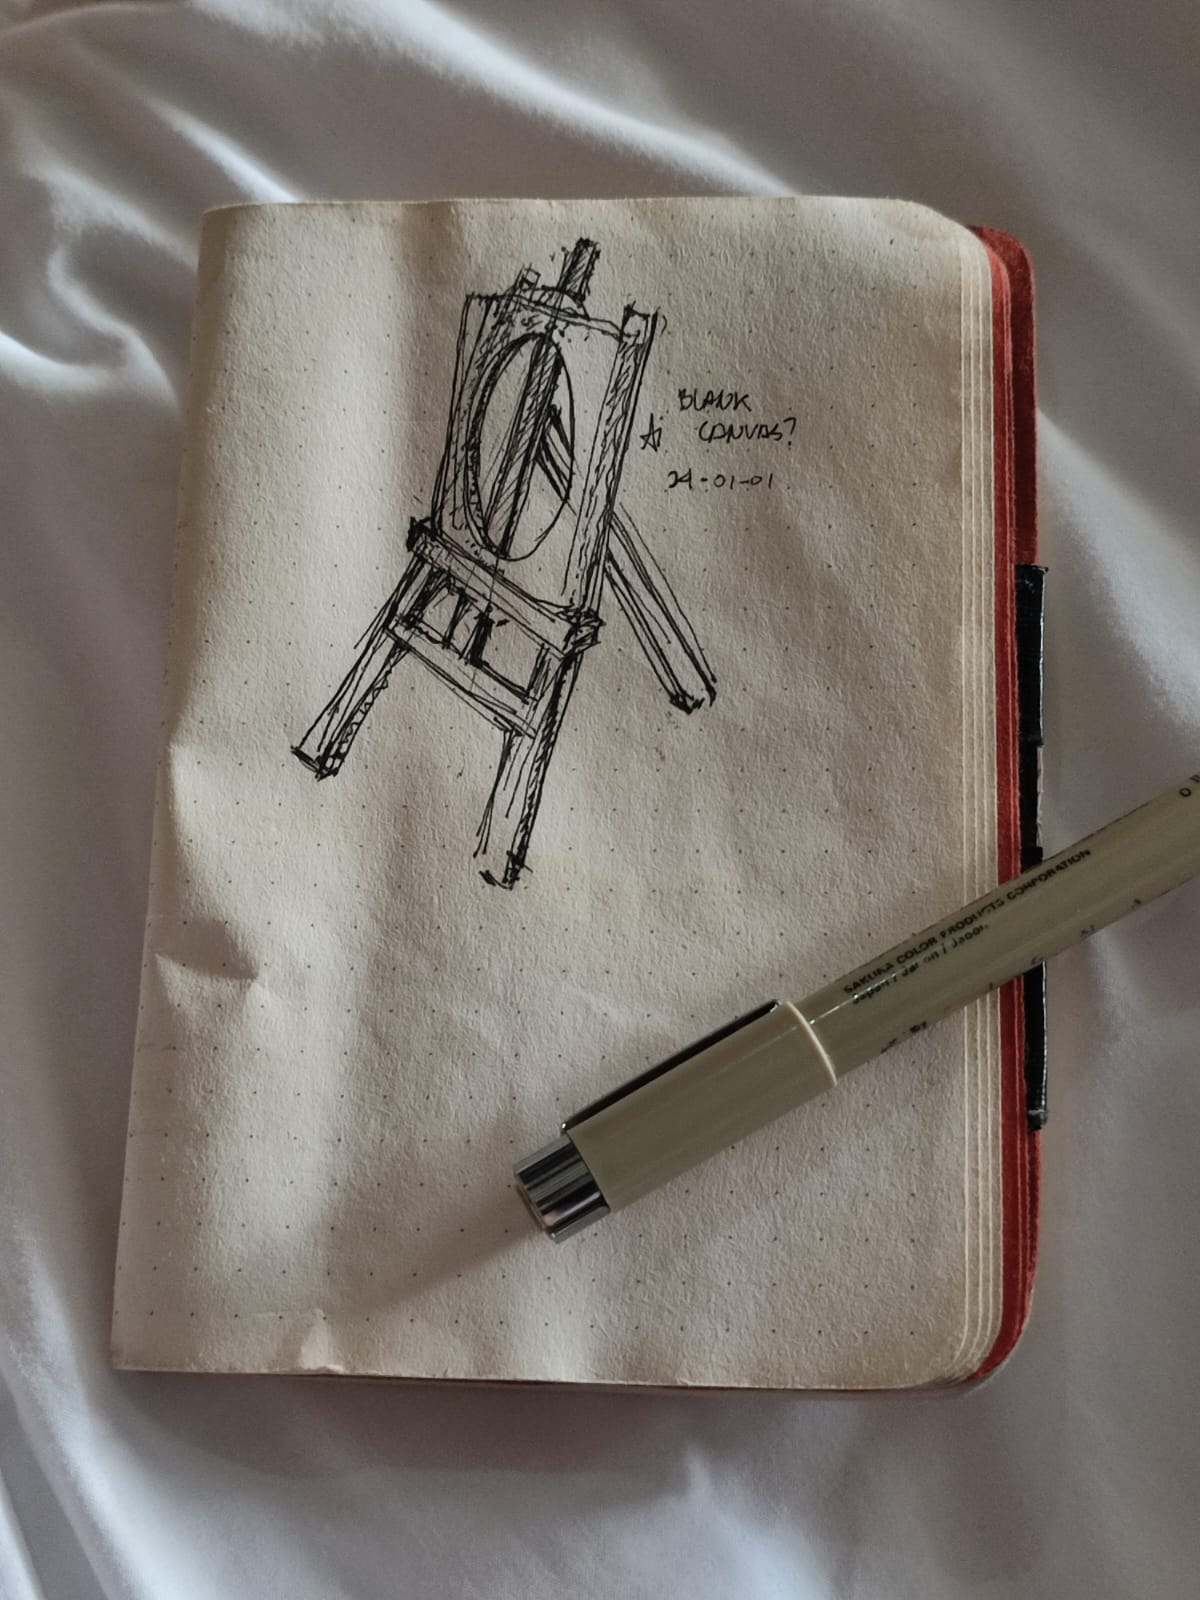 BLANK
CANVAS?
24-01-01
SAKURA COLOR PRODUCTS CORPORATION
Japan / Japon